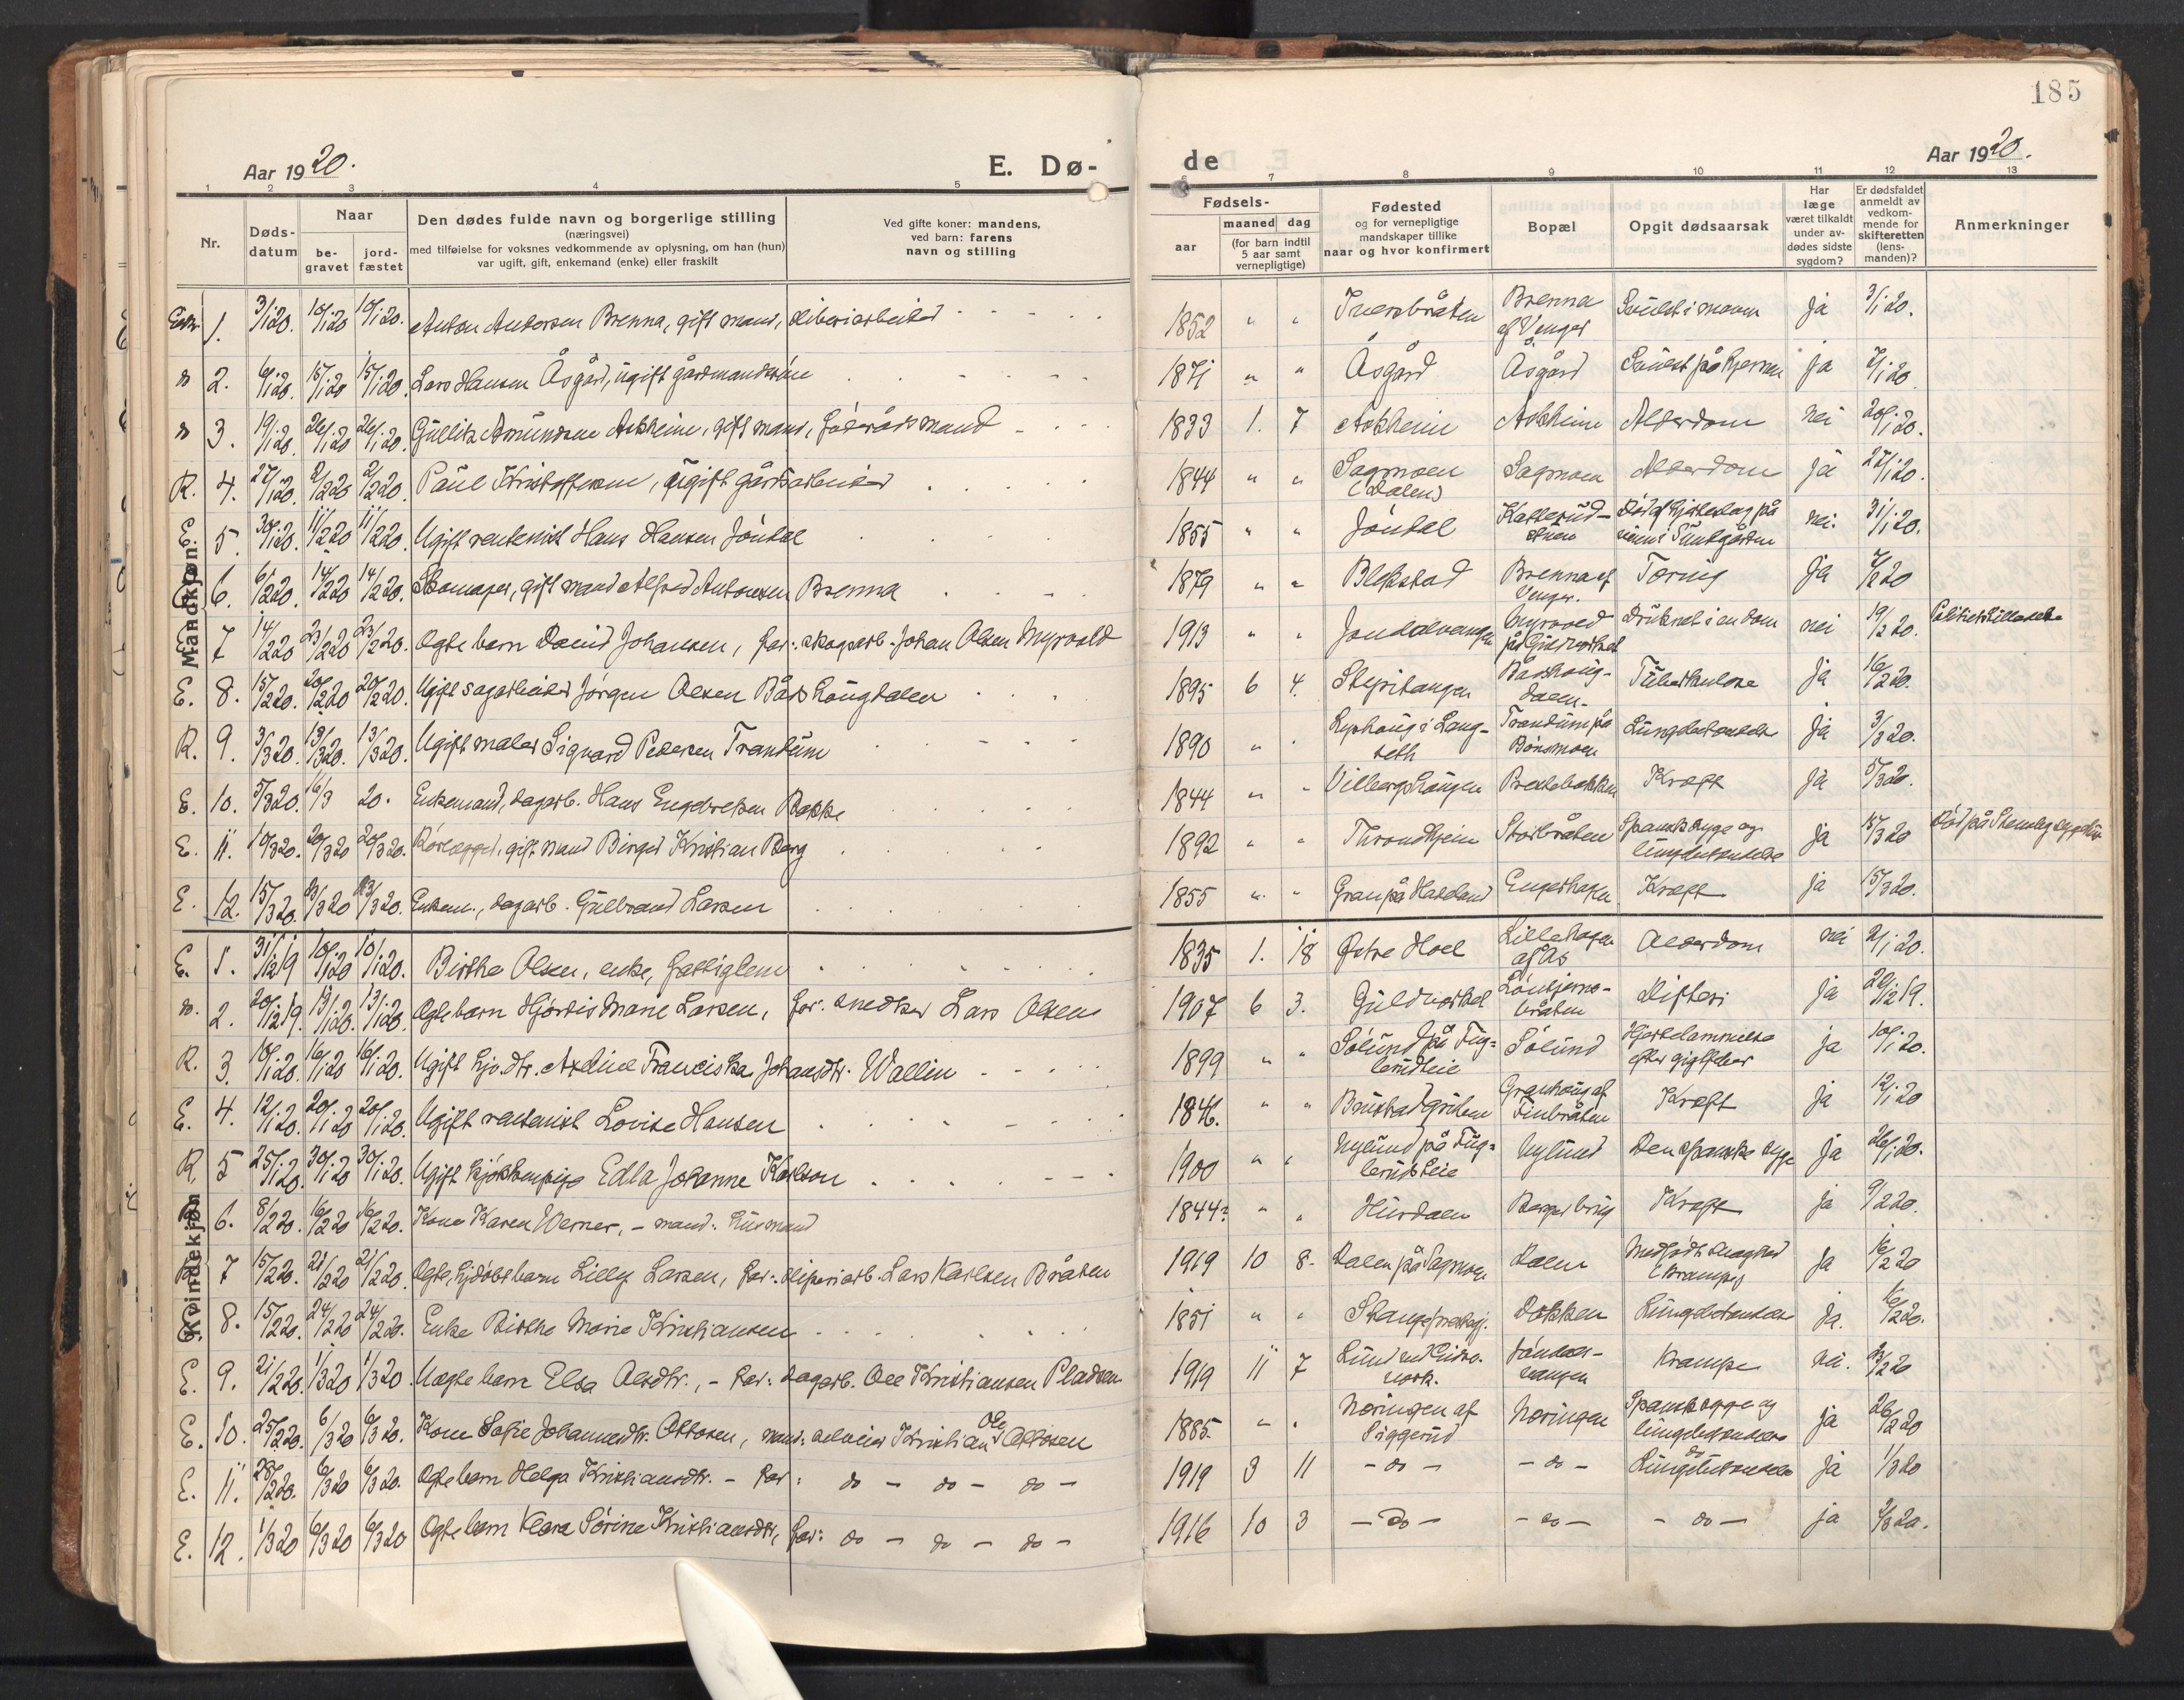 185
Aar 1920.
E. Dø-
de
Aar 1920.
1 2 3 4 5 7 8 9 10 11 12 13
Nr.
Døds-
datum
Naar
be-
gravet
jord-
fæstet
Den dødes fulde navn og borgerlige stilling
(næringsvei)
med tilføielse for voksnes vedkommende av oplysning, om han (hun)
var ugift, gift, enkemand (enke) eller fraskilt
Ved gifte koner: mandens,
ved barn: farens
navn og stilling
Fødsels-
aar
maaned dag
(for barn indtil
5 aar samt
vernepligtige)
Fødested
og for vernepligtige
mandskaper tillike
naar og hvor konfirmert
Bopæl
Opgit dødsaarsak
Har
læge
været tilkaldt
under av-
dødes sidste
sygdom?
Er dødsfaldet
anmeldt av
vedkom-
mende for
skifteretten
(lens-
manden)?
Anmerkninger
Mandkjøn
1. 3/1 20. 10/1 20 10/1 20. Anton Andersen Brenna, gift mand, sliberiarbeider 1852 " " Brenna af Venger ja 3/1 20.
2. 6/1 20. 15/1 20 15/1 20. Lars Hansen Åsgård, ugift gårdmandssön 1871 " " Åsgård Åsgård ja 7/1 20.
3. 19/1 20. 26/1 20 26/1 20. Gullik Amundsen Askheim, gift mand, föderådsmand 1833 1. 7 Askheim Askheim Alderdom nei 20/1 20.
R. 4. 27/1 20. 2/2 20 2/2 20. Paul Kristoffersen, ugift gårdsarbeider 1844 " " Sagmoen (Dalen) Sagmoen Alderdom ja 27/1 20.
E. 5. 30/1 20. 11/2 20 11/2 20. Ugift rentenist Hans Hansen Jöndal 1855 " " Jöndal nei. 31/1 20.
6. 6/2 20. 14/2 20 14/2 20. Skomager, gift mand Alfred Antonsen Brenna 1879 " " Blekstad Brenna af Venger. Tæring Ja 7/2 20
7 14/2 20 23/2 20 23/2 20. Ægte barn David Johansen, far: skogsarb. Johan Olsen Myrvold 1913 " " Jöndalvangen Myrvold på Guldverket Druknet i en dam nei 19/2 20.
E. 8. 15/2 20. 20/2 20 20/2 20. Ugift sagarbeider Jörgen Olsen Bårshaugdalen 1895 6 4. Stepitangen Bårshaug-dalen. Tuberkulose Ja 16/2 20.
R. 9. 3/3 20. 13/3 20. 13/3 20. Ugift maler Sigvard Pedersen Trandum 1890 " " Trandum på Bönsmoen Lungebetændelse Ja 3/3 20.
E. 10. 5/3 20. 16/3 20. Enkemand, dagarb. Hans Engebretsen Bakke 1844 " " Villbergshaugen Kræft Ja 5/3 20.
E. 11. 10/3 20. 20/3 20 20/3 20. Rörlægger, gift mand Birger Kristian Berg 1892 " " Throndhjem Storbråten Spansksyge og lungebetændelse Ja 15/3 20
E. 12. 15/3 20. 23/3 20 23/3 20. Enkem., dagarb. Gulbrand Larsen 1855 " " Gran på Hadeland Engerhagen Kræft ja 15/3 20.
Kvindekjøn
E. 1. 31/12 19 10/1 20 10/1 20. Birthe Olsen, enke, fattiglem 1835 1. 18 Østre Hoel Lillehagen af Ås Alderdom nei 2/1 20.
2. 20/12 19. 13/1 20. 13/1 20. Ægte barn Hjördis Marie Larsen, far: snedker Lars Olsen 1907 6 3. Guldverket Difteri ja 20/12 19.
R. 3. 10/1 20. 16/1 20. 16/1 20. Ugift hjv. dtr. Axeline Franciska Johansdtr. Wallin 1899 " " Sölund på Fug-lerudeie Sölund Hjertelammelse efter gigtfeber ja 10/1 20.
E. 4. 12/1 20. 20/1 20 20/1 20. Ugift rentenist Lovise Hansen 1846. " " Granhaug af Finbråten Kræft ja 12/1 20
R. 5 25/1 20. 30/1 20 30/1 20. Ugift kjökkenpige Edla Johanne Karlson 1900 " " Nylund på Fug-lerudeie Nylund Den spanske syge Ja 26/1 20.
6. 8/2 20. 16/2 20 16/2 20. Kone Karen Werner, - mand: husmand 1844? " " Hurdalen Kræft ja 9/2 20.
7 15/2 20. 21/2 20 21/2 20. Ægte, hjdöbt barn Lilly Larsen, far: sliperiarb. Lars Karlsen Bråten 1919 10 8. Dalen på Sagmoen Dalen Medfödt svaghed (krampe) Ja 16/2 20
8. 15/2 20. 24/2 20 24/2 20. Enke Birthe Marie Kristiansen 1851 " " Stange prestegj. Dokken Lungebetændelse Ja. 16/2 20.
E. 9. 21/2 20. 1/3 20 1/3 20. Uægte barn Elsa Olsdtr., - far: dagarb. Ole Kristiansen Pladsen 1919 11 7 Jöndal-vangen Krampe nei. 23/2 20
E. 10. 25/2 20. 6/3 20 6/3 20. Kone Sofie Johannesdtr. Ottosen, mand: Kristian Ole Ottosen 1885. " " Næringen af Siggerud Næringen Spansksyge og lungebetændelse ja 26/2 20
E. 11. 28/2 20. 6/3 20 6/3 20. Ægte barn Helga Kristiansdtr. - far: do - do - do - 1919 3 11 - do - - do - do Lungebetændelse ja 1/3 20
E. 12. 1/3 20 6/3 20 6/3 20 Ægte barn Klara Sörine Kristiansdtr, far: do - do - do - 1916 10 3 - do - - do - - do - ja 2/3 20.